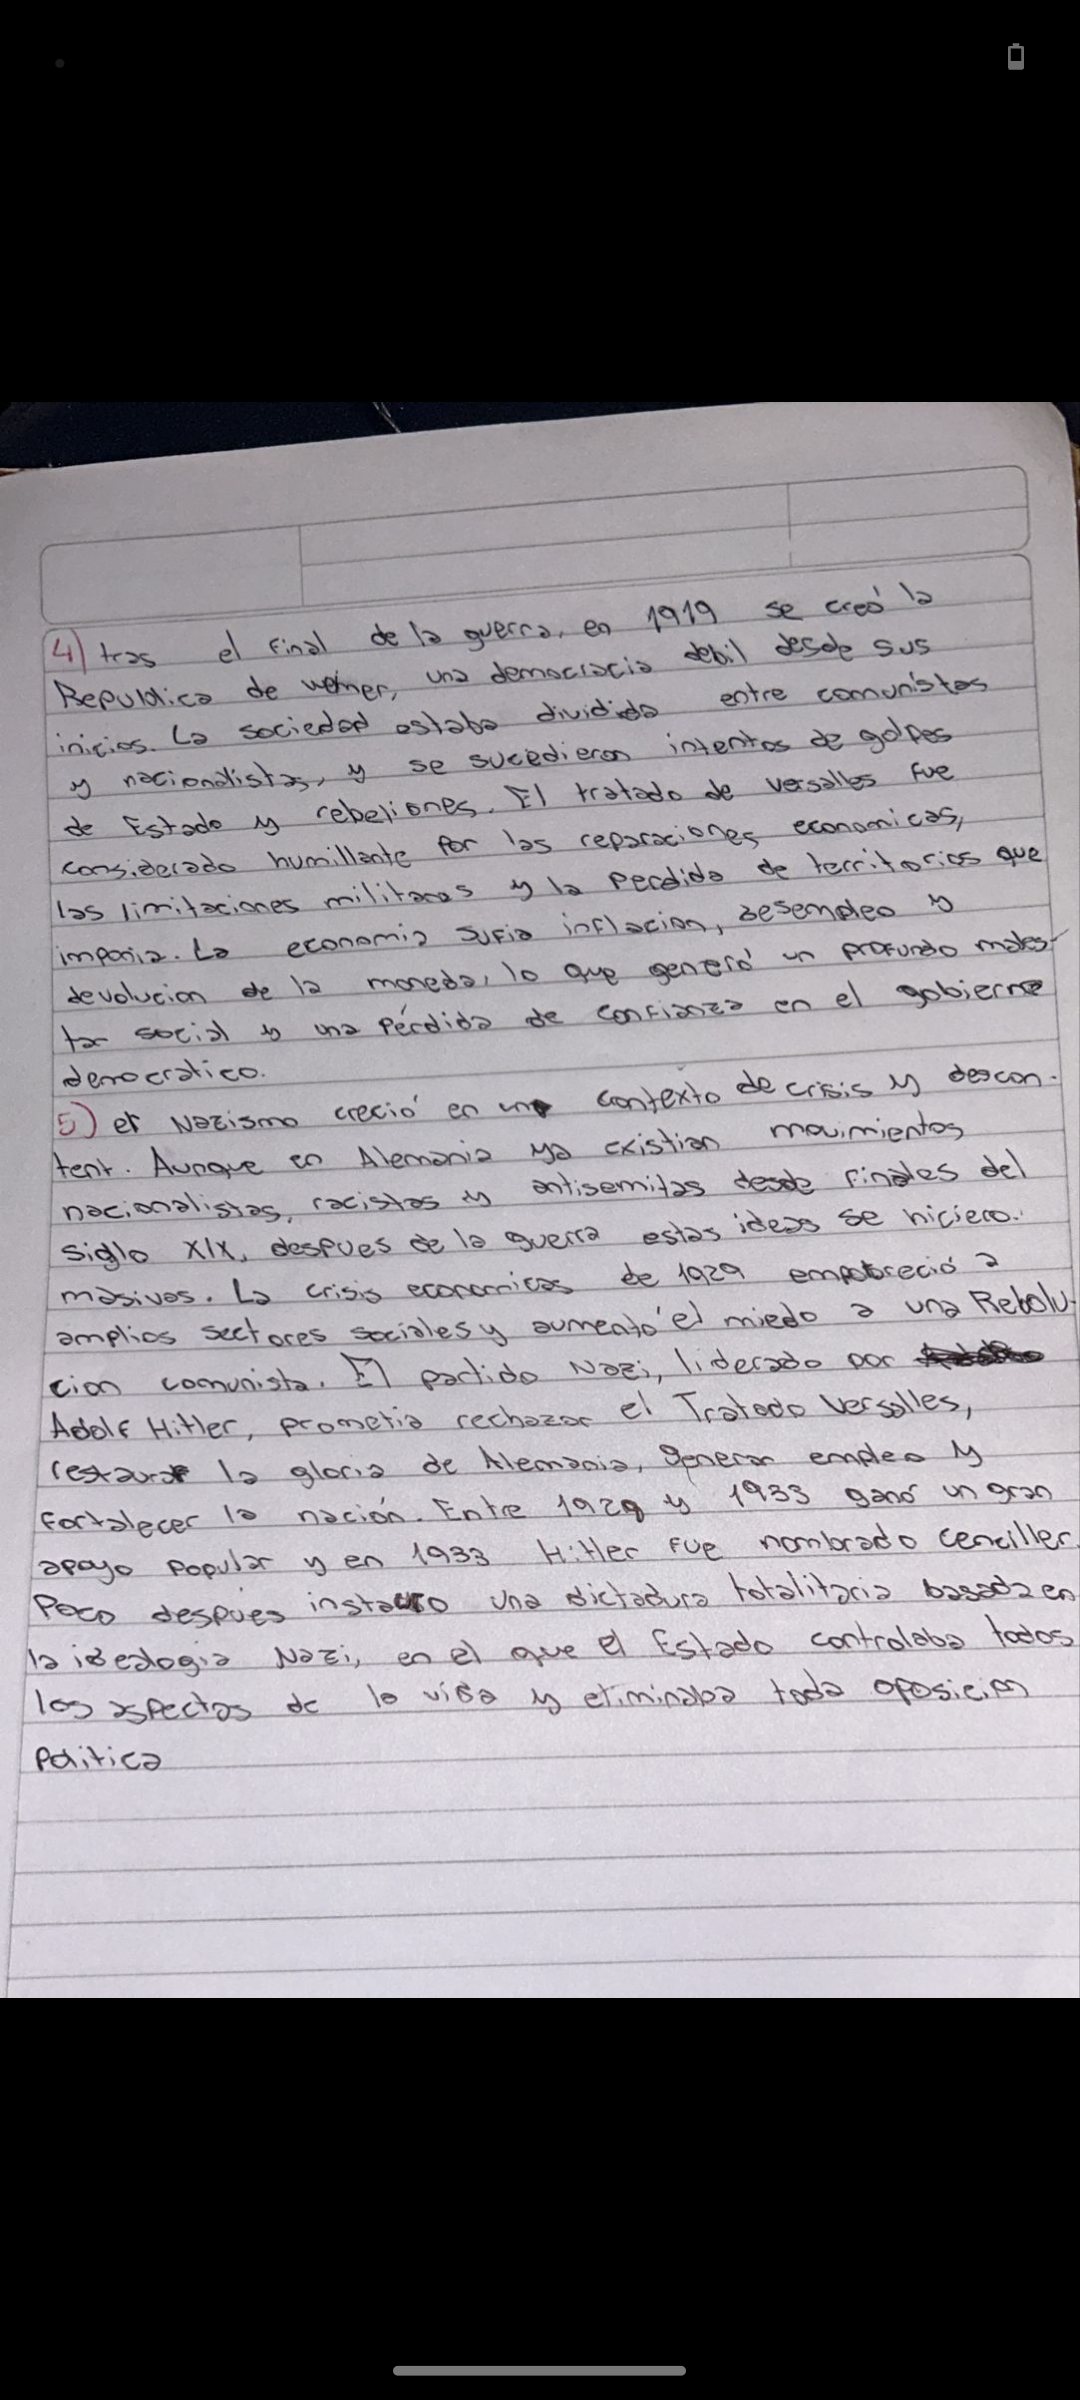 4) tras el final de la guerra, en 1919 se creó la
Republica de weiner, una democracia debil desde sus
inicios. La sociedad estaba dividida entre comunistas
y nacionalistas, y se sucedieron intentos de golpes
de Estado y rebeliones. El tratado de versalles fue
considerado humillante por las reparaciones economicas,
las limitaciones militares y la perdida de territorios que
imponia. La economia sufia inflacion, desempleo y
devolucion de la moneda, lo que generó un profundo males-
tar social y una pérdida de confianza en el gobierno
democratico.
5) el Nazismo creció en un contexto de crisis y descon-
tent. Aunque en Alemania ya existian movimientos
nacionalistas, racistas y antisemitas desde finales del
siglo XIX, despues de la guerra estas ideas se hiciero.
masivas. La crisis economicas de 1929 empobreció a
amplios sectores sociales y aumentó el miedo a una Rebolu-
cion comunista. El partido Nazi, liderado por
Adolf Hitler, prometia rechazar el Tratado Versalles,
restaurar la gloria de Alemania, generar empleo y
fortalecer la nación. Entre 1929 y 1933 ganó un gran
apoyo popular y en 1933 Hitler fue nombrado canciller.
Poco despues instauro una dictadura totalitaria basada en
la ideologia Nazi, en el que el Estado controlaba todos
los aspectos de la vida y eliminaba toda oposicion
politica